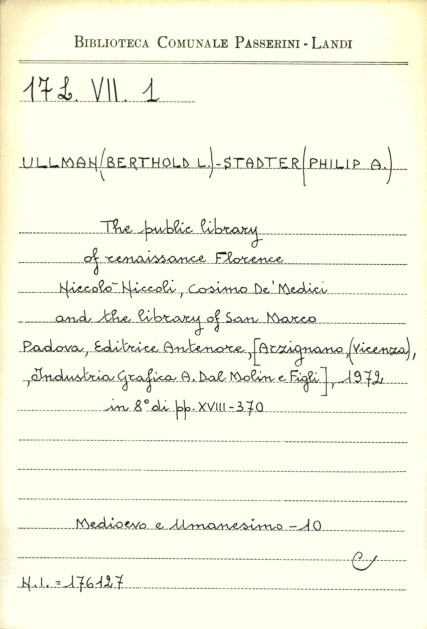 BIBLIOTECA COMUNALE PASSERINI - LANDI
17 L. VII. 1
ULLMAN (BERTHOLD L.) - STADTER (PHILIP A.)
The public library
of renaissance Florence
Niccolò Niccoli, Cosimo De' Medici
and the library of San Marco
Padova, Editrice Antenore, [Arzignano, (Vicenza),
, Industria Grafica A. Dal Molin e Figli], 1972
in 8° di pp. XVIII-370
Medioevo e Umanesimo - 10
C
N.I. = 176127